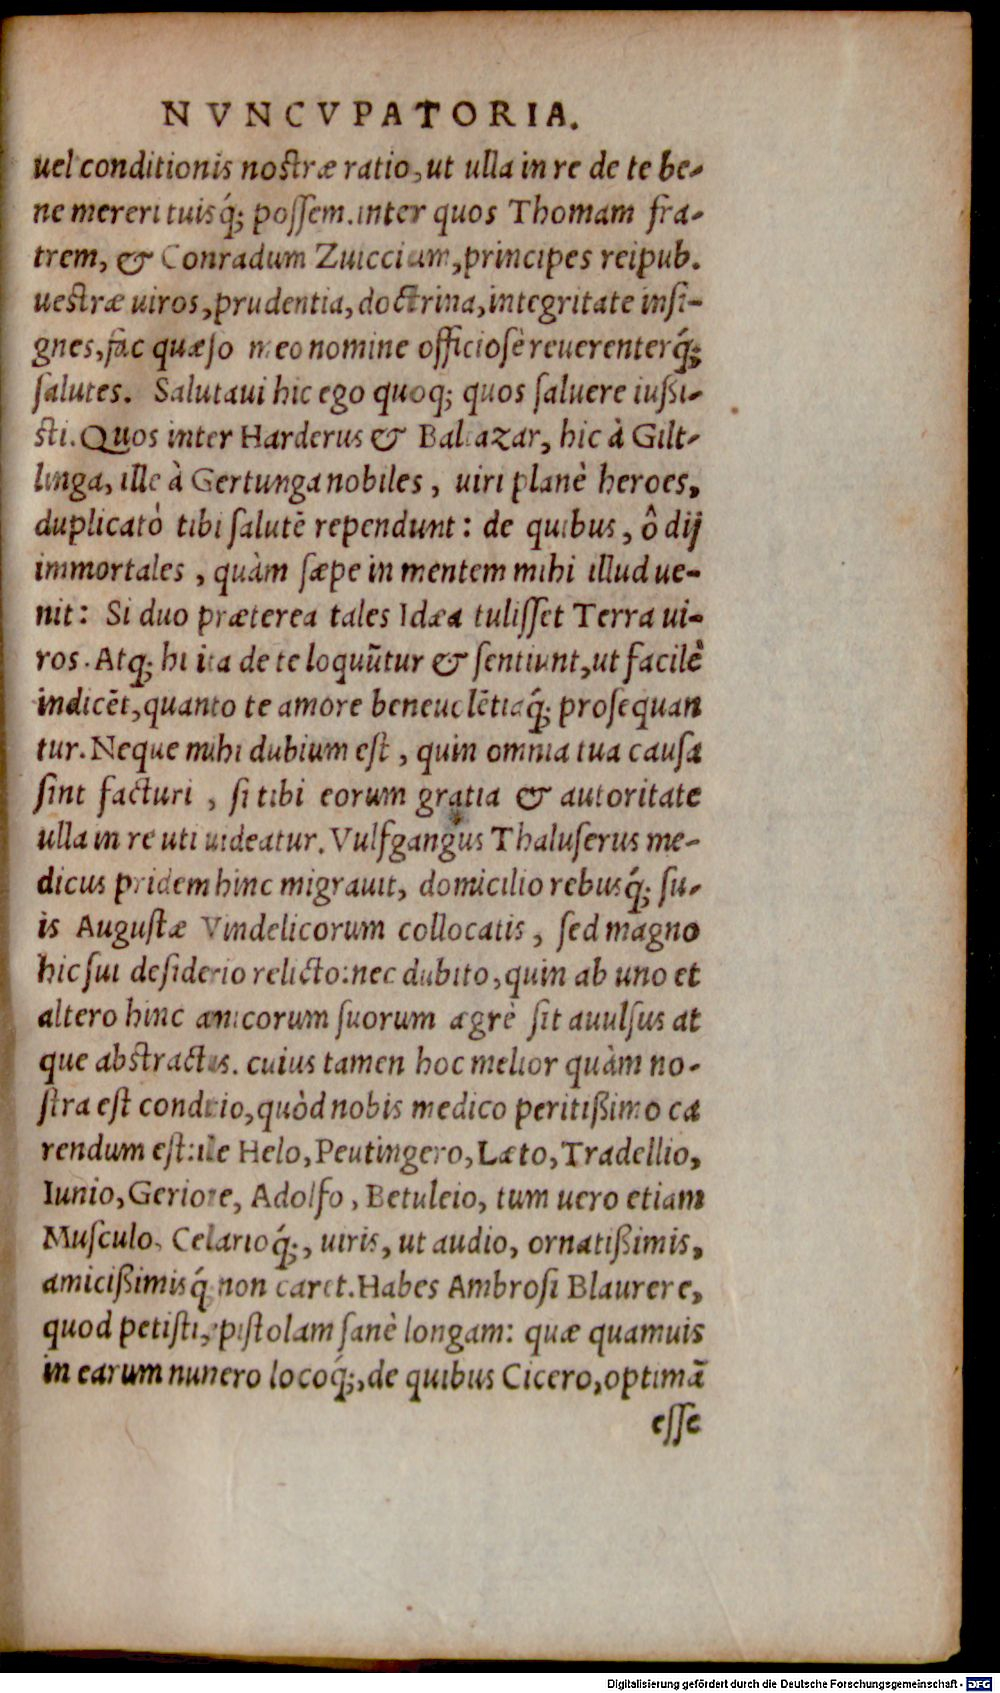 NVNCVPATORIA.
uel conditionis nostræ ratio, ut ulla in re de te be-
ne mereri tuisq́; possem. inter quos Thomam fra-
trem, & Conradum Zuiccium, principes reipub.
uestræ uiros, prudentia, doctrina, integritate insi-
gnes, fac quæso meo nomine officiosè reuerenterq́;
salutes. Salutaui hic ego quoq; quos saluere iußi-
sti. Quos inter Harderus & Baltazar, hic à Gilt-
linga, ille à Gertunga nobiles, uiri planè heroes,
duplicatò tibi salutē rependunt: de quibus, ô dij
immortales, quàm sæpe in mentem mihi illud ue-
nit: Si duo præterea tales Idæa tulisset Terra ui-
ros. Atq; hi ita de te loquūtur & sentiunt, ut facilè
indicēt, quanto te amore beneuolētiaq́; prosequan
tur. Neque mihi dubium est, quin omnia tua causa
sint facturi, si tibi eorum gratia & autoritate
ulla in re uti uideatur. Vulfgangus Thaluserus me-
dicus pridem hinc migrauit, domicilio rebusq́; su-
is Augustæ Vindelicorum collocatis, sed magno
hic sui desiderio relicto: nec dubito, quin ab uno et
altero hinc amicorum suorum ægrè sit auulsus at
que abstractus. cuius tamen hoc melior quàm no-
stra est conditio, quòd nobis medico peritißimo ca
rendum est: ille Helo, Peutingero, Læto, Tradellio,
Iunio, Geriore, Adolfo, Betuleio, tum uero etiam
Musculo, Celarioq́;, uiris, ut audio, ornatißimis,
amicißimisq́; non caret. Habes Ambrosi Blaurere,
quod petisti, epistolam sanè longam: quæ quamuis
in earum numero locoq́;, de quibus Cicero, optimā
esse
Digitalisierung gefördert durch die Deutsche Forschungsgemeinschaft - DFG